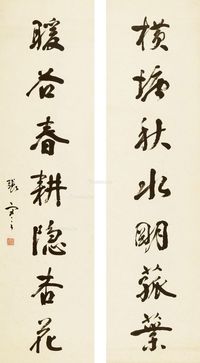 横塘秋水明菰叶
暖谷春耕隐杏花
張寒